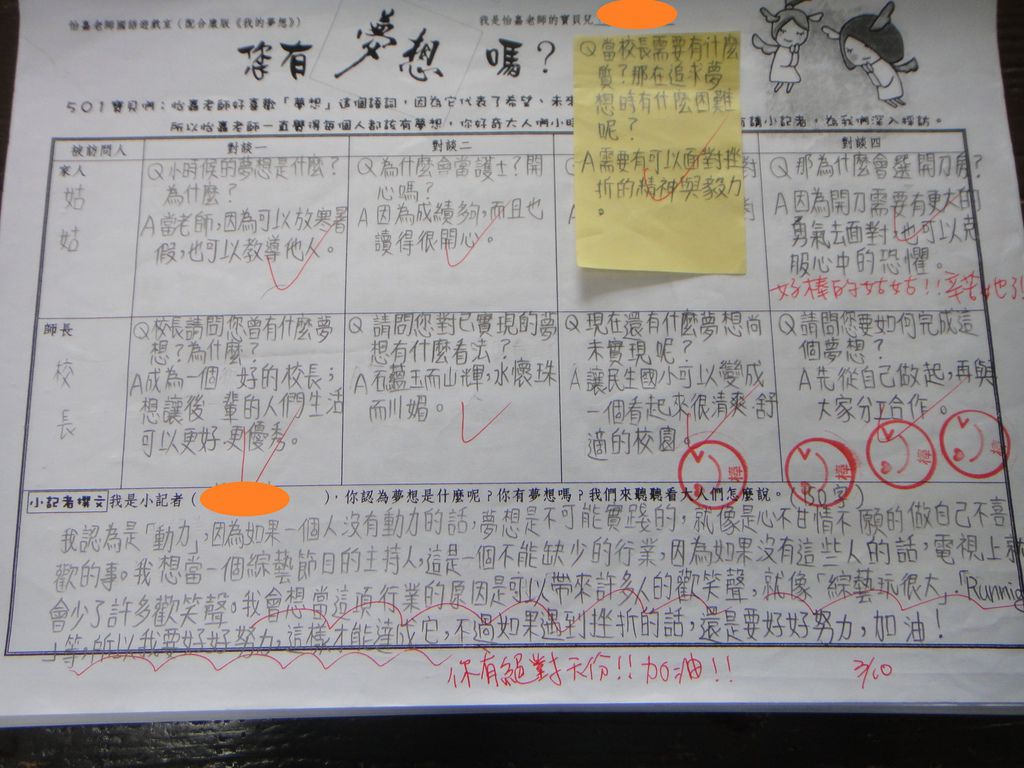 怡嘉老師國語遊戲室(配合康版《我的夢想》)
我是怡嘉老師的寶貝兒
你有夢想嗎?
501寶貝們:怡嘉老師好喜歡「夢想」這個語詞,因為它代表了希望、未來
所以怡嘉老師一直覺得每個人都該有夢想,你好奇大人們小時
有請小記者,為我們深入採訪。
Q當校長需要有什麼
質?那在追求夢
想時有什麼困難
呢?
A需要有可以面對挫
折的精神與毅力
。
被訪問人
對談一
對談二
對談四
家人
姑
姑
Q小時候的夢想是什麼?
為什麼?
A當老師,因為可以放寒暑
假,也可以教導他人。
Q為什麼會當護士?開
心嗎?
A因為成績夠,而且也
讀得很開心。
Q那為什麼會選開刀房?
A因為開刀需要有更大的
勇氣去面對,也可以克
服心中的恐懼。
好棒的姑姑!!辛苦她了
師長
校
長
Q校長請問您曾有什麼夢
想?為什麼?
A成為一個 好的校長;
想讓後一輩的人們生活
可以更好、更優秀。
Q請問您對已實現的夢
想有什麼看法?
A石蘊玉而山輝,水懷珠
而川媚。
Q現在還有什麼夢想尚
未實現呢?
A讓民生國小可以變成
一個看起來很清爽、舒
適的校園。
Q請問您要如何完成這
個夢想?
A先從自己做起,再與
大家分工合作。
棒
棒
棒
棒
小記者撰文 我是小記者( ),你認為夢想是什麼呢?你有夢想嗎?我們來聽聽看大人們怎麼說。(150字)
我認為是「動力」,因為如果一個人沒有動力的話,夢想是不可能實踐的,就像是心不甘情不願的做自己不喜
歡的事。我想當一個綜藝節目的主持人,這是一個不能缺少的行業,因為如果沒有這些人的話,電視上就
會少了許多歡笑聲。我會想當這項行業的原因是可以帶來許多人的歡笑聲,就像「綜藝玩很大」、「Running
」等,所以我要好好努力,這樣才能達成它,不過如果遇到挫折的話,還是要好好努力,加油!
你有絕對天份!!加油!!
3/10